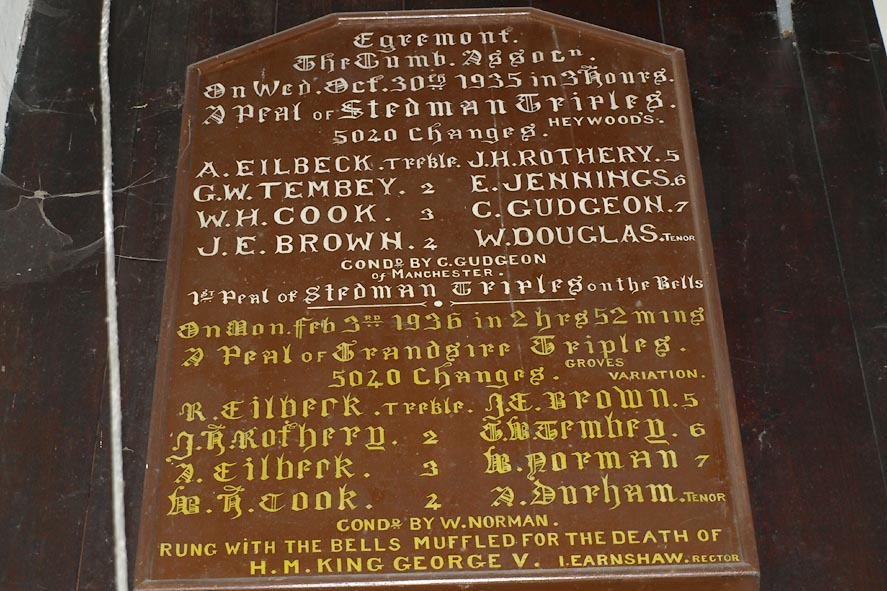 Egremont.
The Cumb. Assocn.
On Wed. Oct. 30th 1935 in 3 Hours.
A Peal of Stedman Triples.
HEYWOOD'S.
5040 Changes.
A. EILBECK. Treble. J.H. ROTHERY. 5
G.W. TEMBEY. 2 E. JENNINGS. 6
W.H. COOK. 3 C. GUDGEON. 7
J.E. BROWN. 4 W. DOUGLAS. TENOR
CONDR. BY C. GUDGEON
of MANCHESTER.
1ST Peal of Stedman Triples on the Bells
On Mon. Feb 3RD 1936 in 2 hrs 52 mins
A Peal of Grandsire Triples.
GROVES VARIATION.
5040 Changes.
R. Eilbeck. Treble. J.E. Brown. 5
J.H. Rothery. 2 G.W. Tembey. 6
A. Eilbeck. 3 W. Norman 7
W.H. Cook. 4 A. Durham. TENOR
CONDR. BY W. NORMAN.
RUNG WITH THE BELLS MUFFLED FOR THE DEATH OF
H.M. KING GEORGE V. I. EARNSHAW. RECTOR